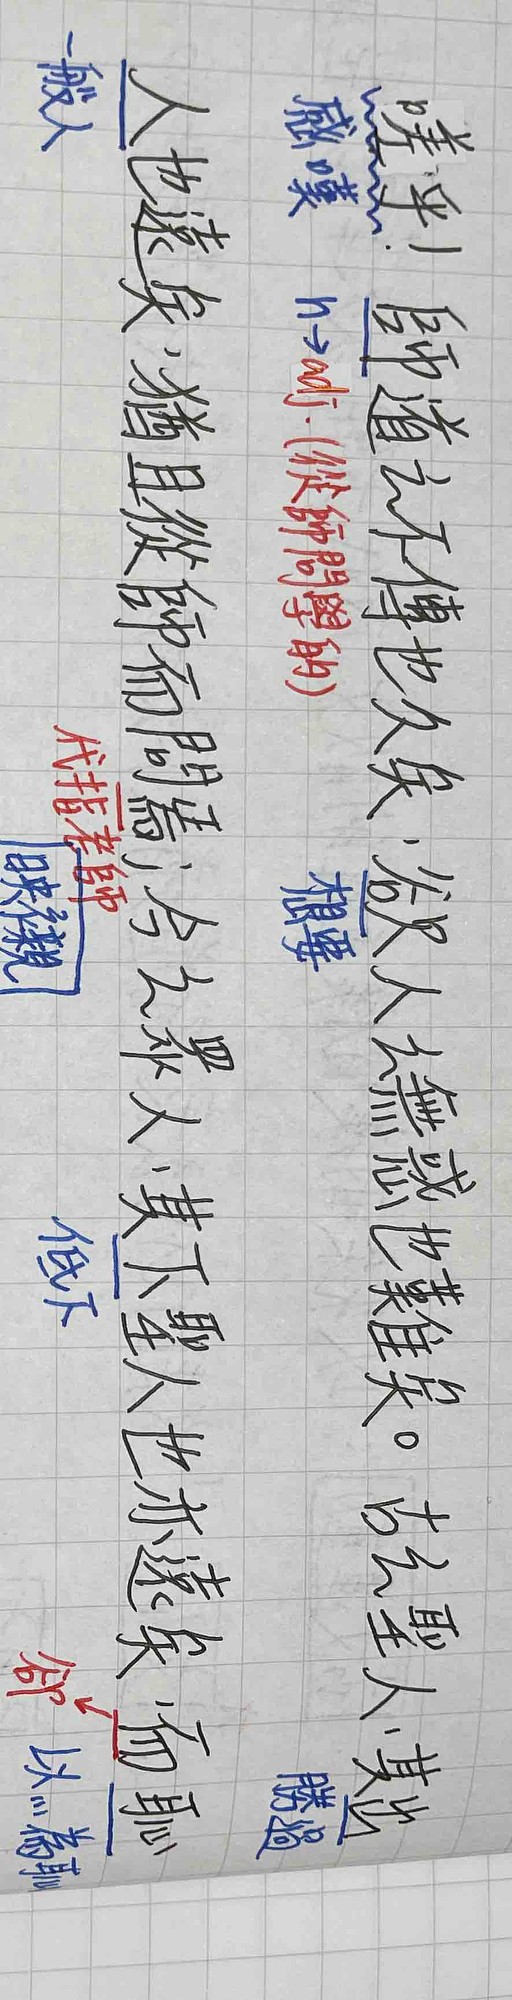 嗟乎！師道之不傳也久矣，欲人之無惑也難矣。古之聖人，其出
感嘆
n→adj.(從師問學的)
想要
勝過
人也遠矣，猶且從師而問焉；今之眾人，其下聖人也亦遠矣，而恥
一般人
代指老師
映襯
低下
卻
以…為恥